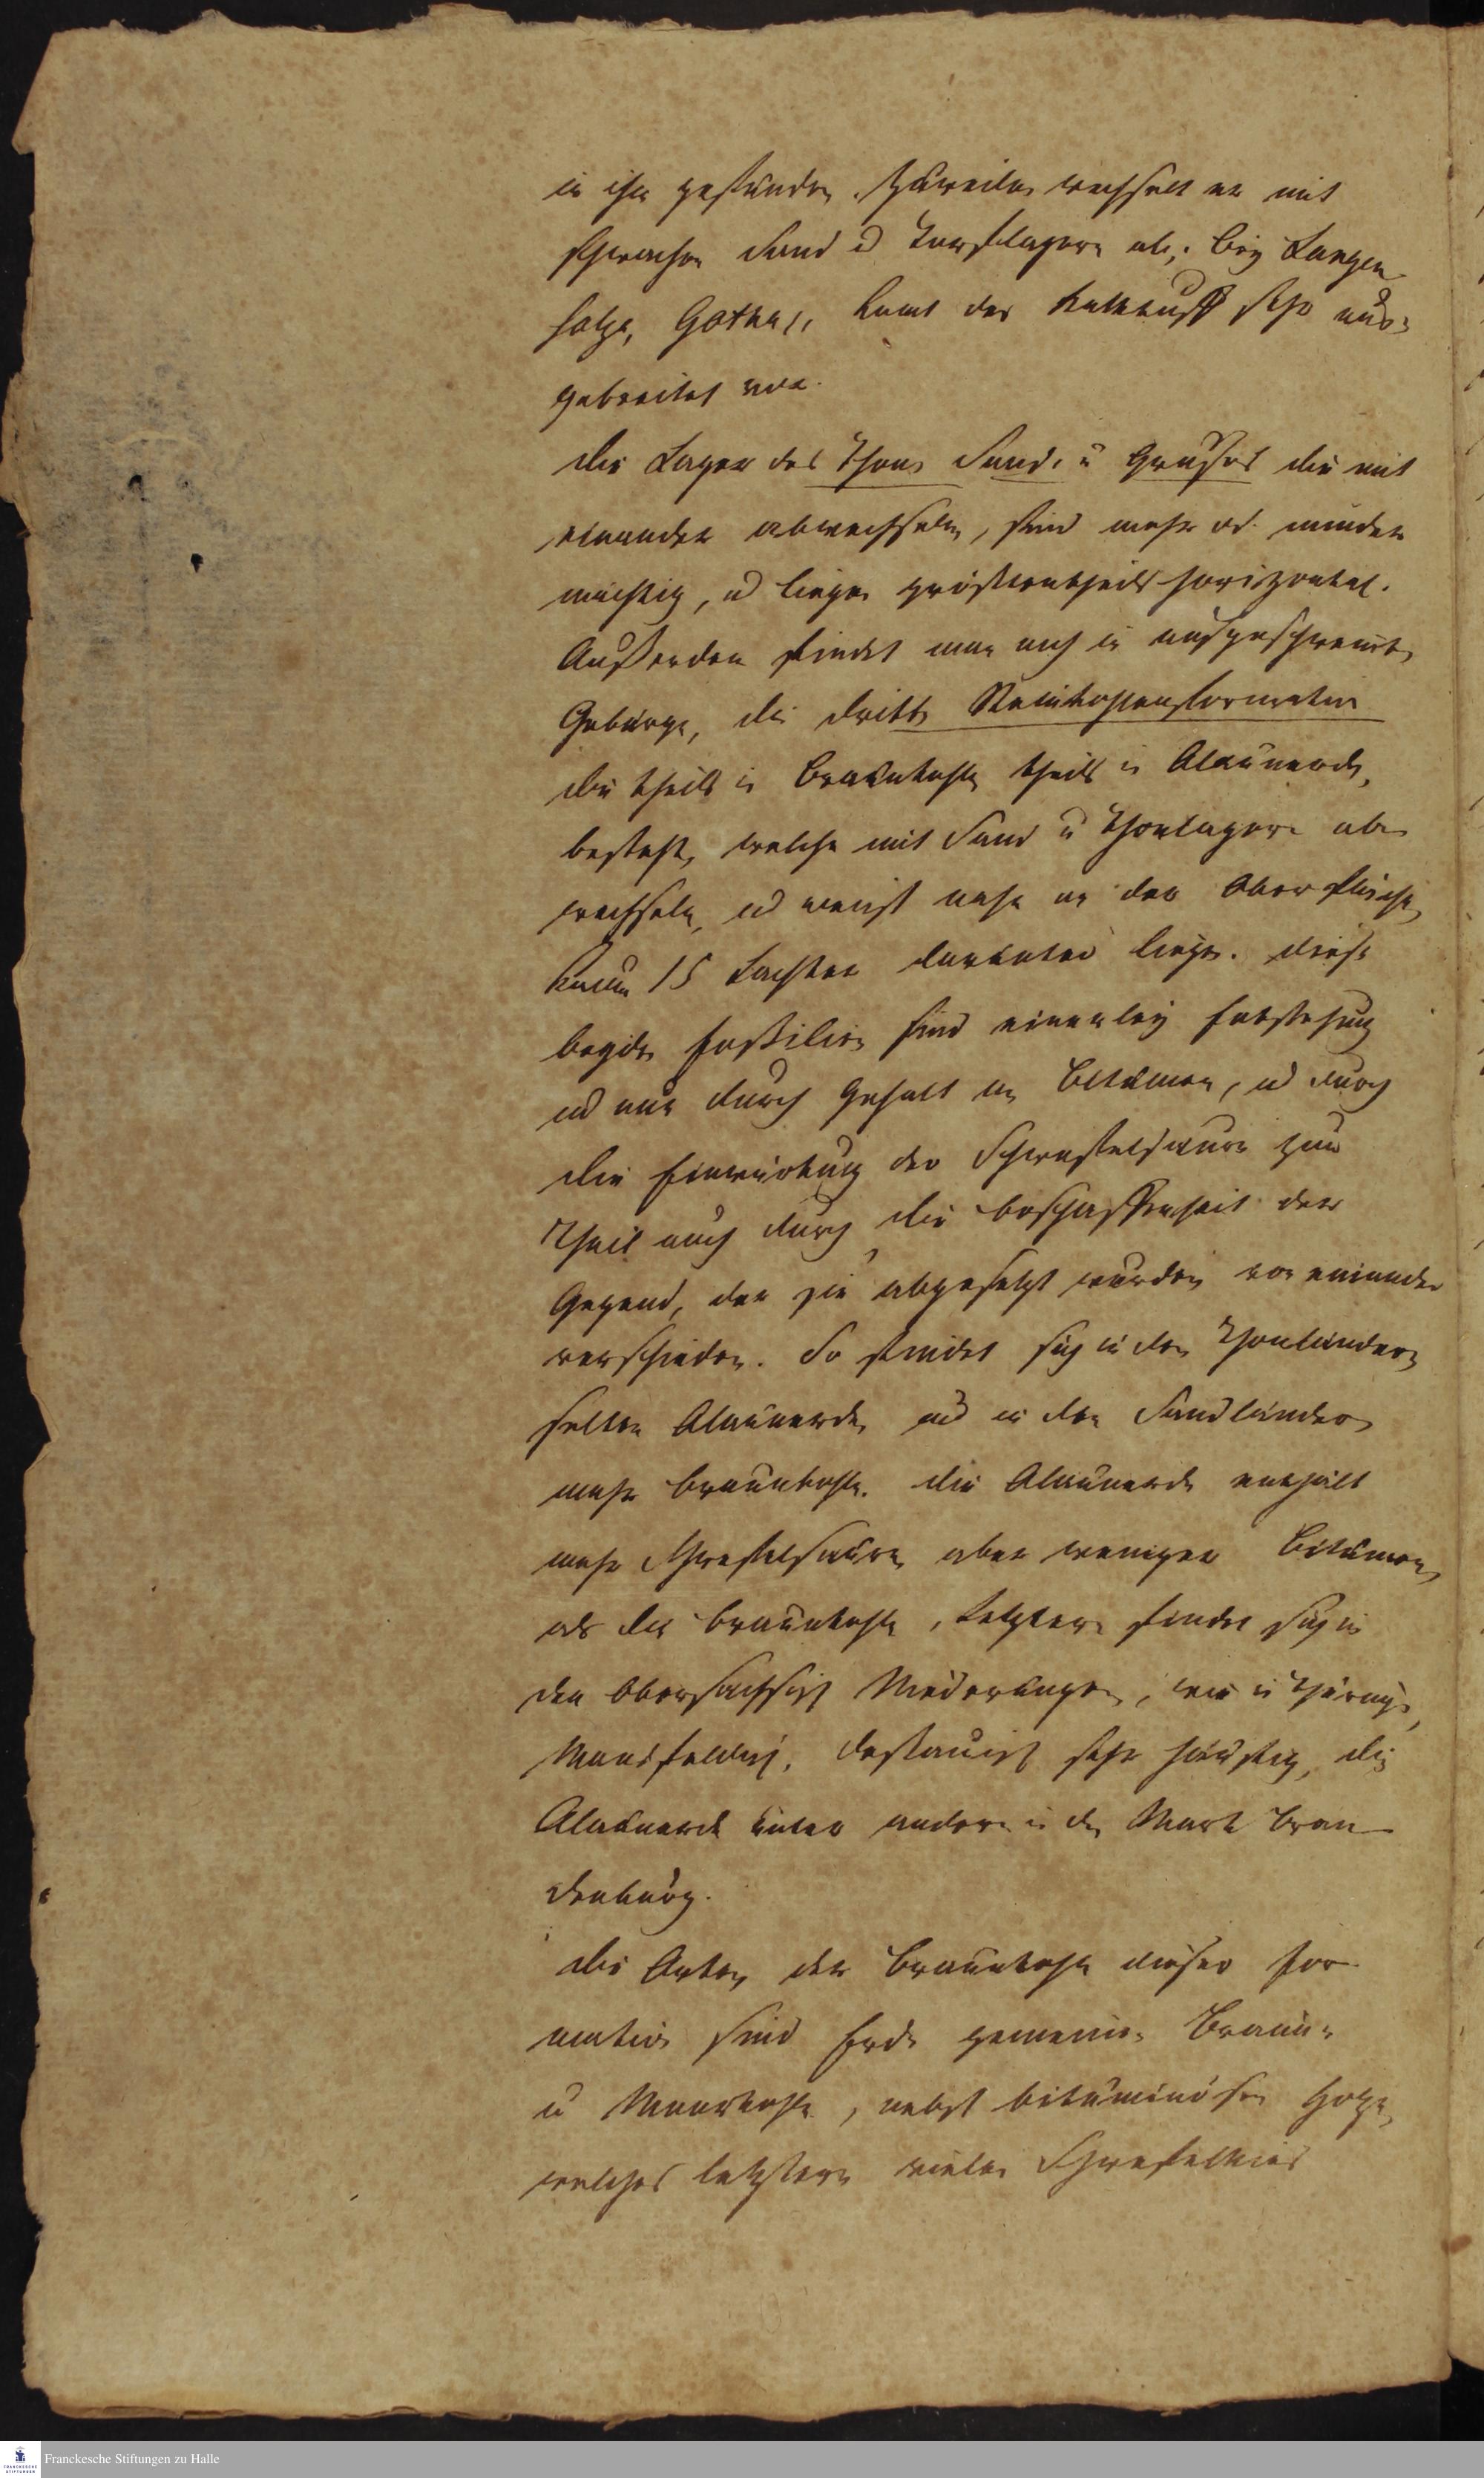 in ihm gefunden. Zuweilen wechselt er mit
schwachen Sand u Torflagern ab; bey Langen
salze, Gotha, komt der Kalktuff sehr aus¬
gebreitet vor.
die Lager des Thons Sands u Grußes die mit
einander abwechseln, sind mehr od. minder
mächtig, ud liegen größtentheils horizontal.
Außerdem findet man auch in aufgeschwemt
Gebürge, die dritte Steinkohlenformation
die theils in Braunkohle theils in Alaunerde,
besteht, welche mit Sand u Thonlagern ab
wechseln, ud meist nahe an der Oberfläche,
kaum 15 Lachter darunter liegen. diese
beyde Foßilien sind einerley Entstehung
ud nur durch Gehalt an Bitumen, ud durch
die Einwirkung der Schwefelsäure zum
Theil auch durch die Beschaffenheit der
Gegend, der sie abgesetzt wurden von einander
verschieden. So findet sich in den Thonländern
selten Alaunerde, ud in den Sandländern
mehr Braunkohle. die Alaunerde enthält
mehr Schwefelsäure aber weniger Bitumen,
als die Braunkohle, letztere findet sich in
den Obersächsisch Niederungen, wie in Thüring,
Mansfeldisch, Dessauisch sehr häufig, die
Alaunerde unter andern in der Mark Bran
denburg.
die Arten der Braunkohle dieser For
mation sind Erde gemeine Braun¬
u Moorkohle, nebst bituminösen Holze,
welches letztere vielen Schwefelkies
Franckesche Stiftungen zu Halle